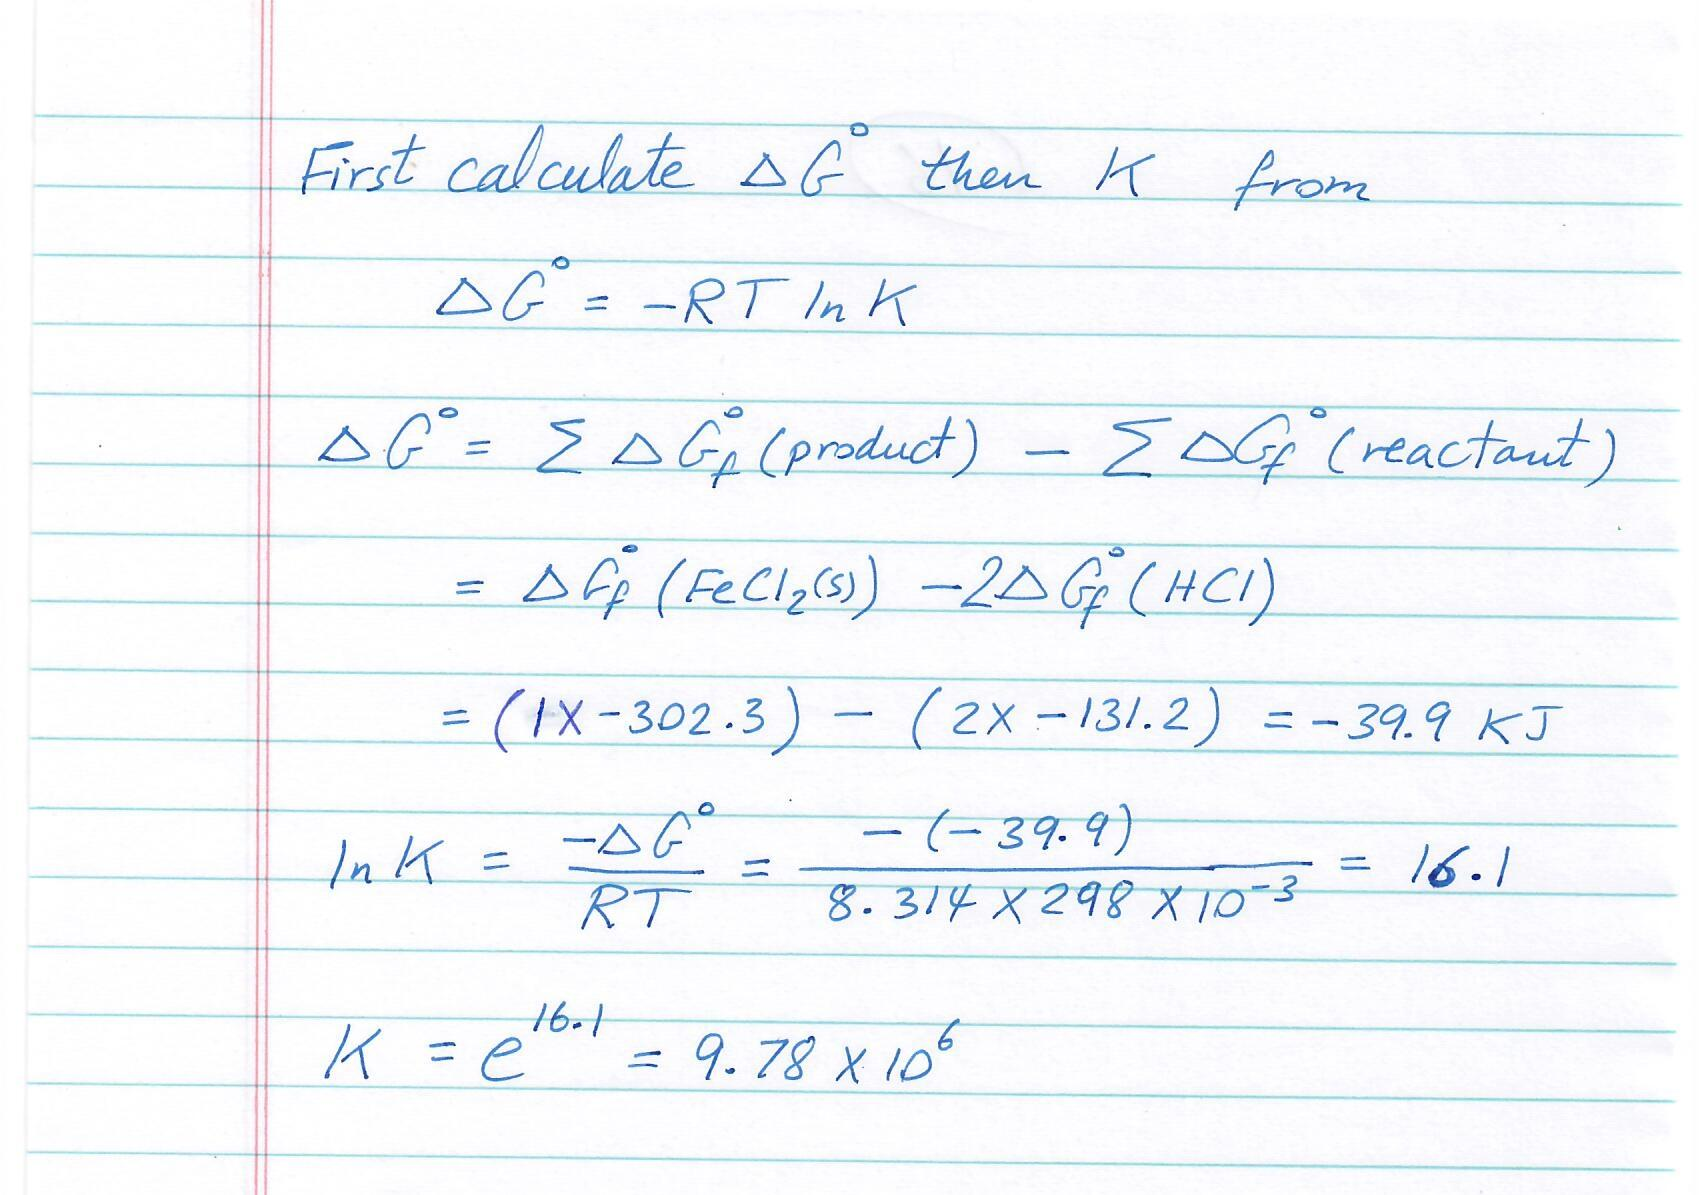 First calculate ΔG° then K from
ΔG° = -RT ln K
ΔG° = Σ ΔGf° (product) - Σ ΔGf° (reactant)
= ΔGf° (FeCl₂(s)) - 2ΔGf° (HCl)
= (1X-302.3) - (2X-131.2) = -39.9 KJ
ln K = -ΔG°/RT = -(-39.9)/8.314 X 298 X 10⁻³ = 16.1
K = e^16.1 = 9.78 X 10⁶